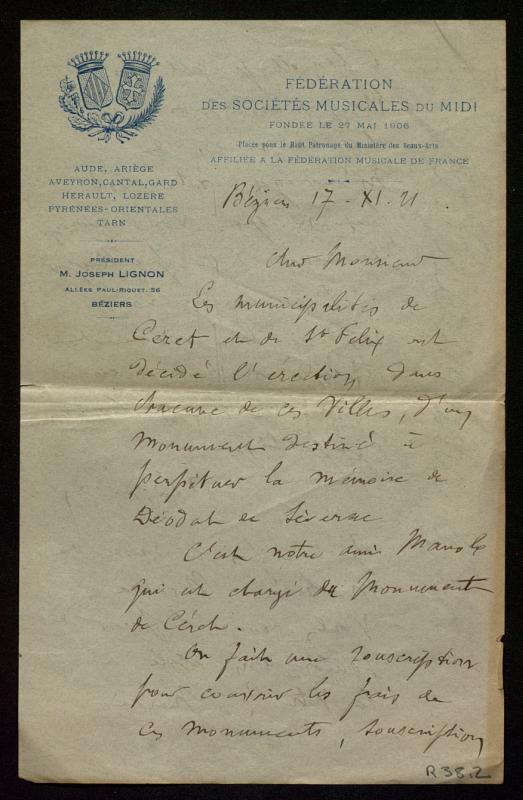 FÉDÉRATION
DES SOCIÉTÉS MUSICALES DU MIDI
FONDÉE LE 27 MAI 1906
Placée sous le Haut Patronage du Ministère des Beaux-Arts
AFFILIÉE A LA FÉDÉRATION MUSICALE DE FRANCE
AUDE, ARIÈGE
AVEYRON, CANTAL, GARD
HERAULT, LOZÈRE
PYRÉNÉES-ORIENTALES
TARN
PRÉSIDENT
M. JOSEPH LIGNON
ALLÉES PAUL-RIQUET, 56
BÉZIERS
Béziers 17-XI. 21
Cher Monsieur
Les municipalités de
Céret et de St Félix ont
décidé l'érection, dans
chacune de ces Villes, d'un
Monument destiné à
perpétuer la mémoire de
Déodat de Séverac
C'est notre ami Manolo
qui est chargé du Monument
de Céret.
On fait une souscription
pour couvrir les frais de
ces monuments, souscription
R38.2